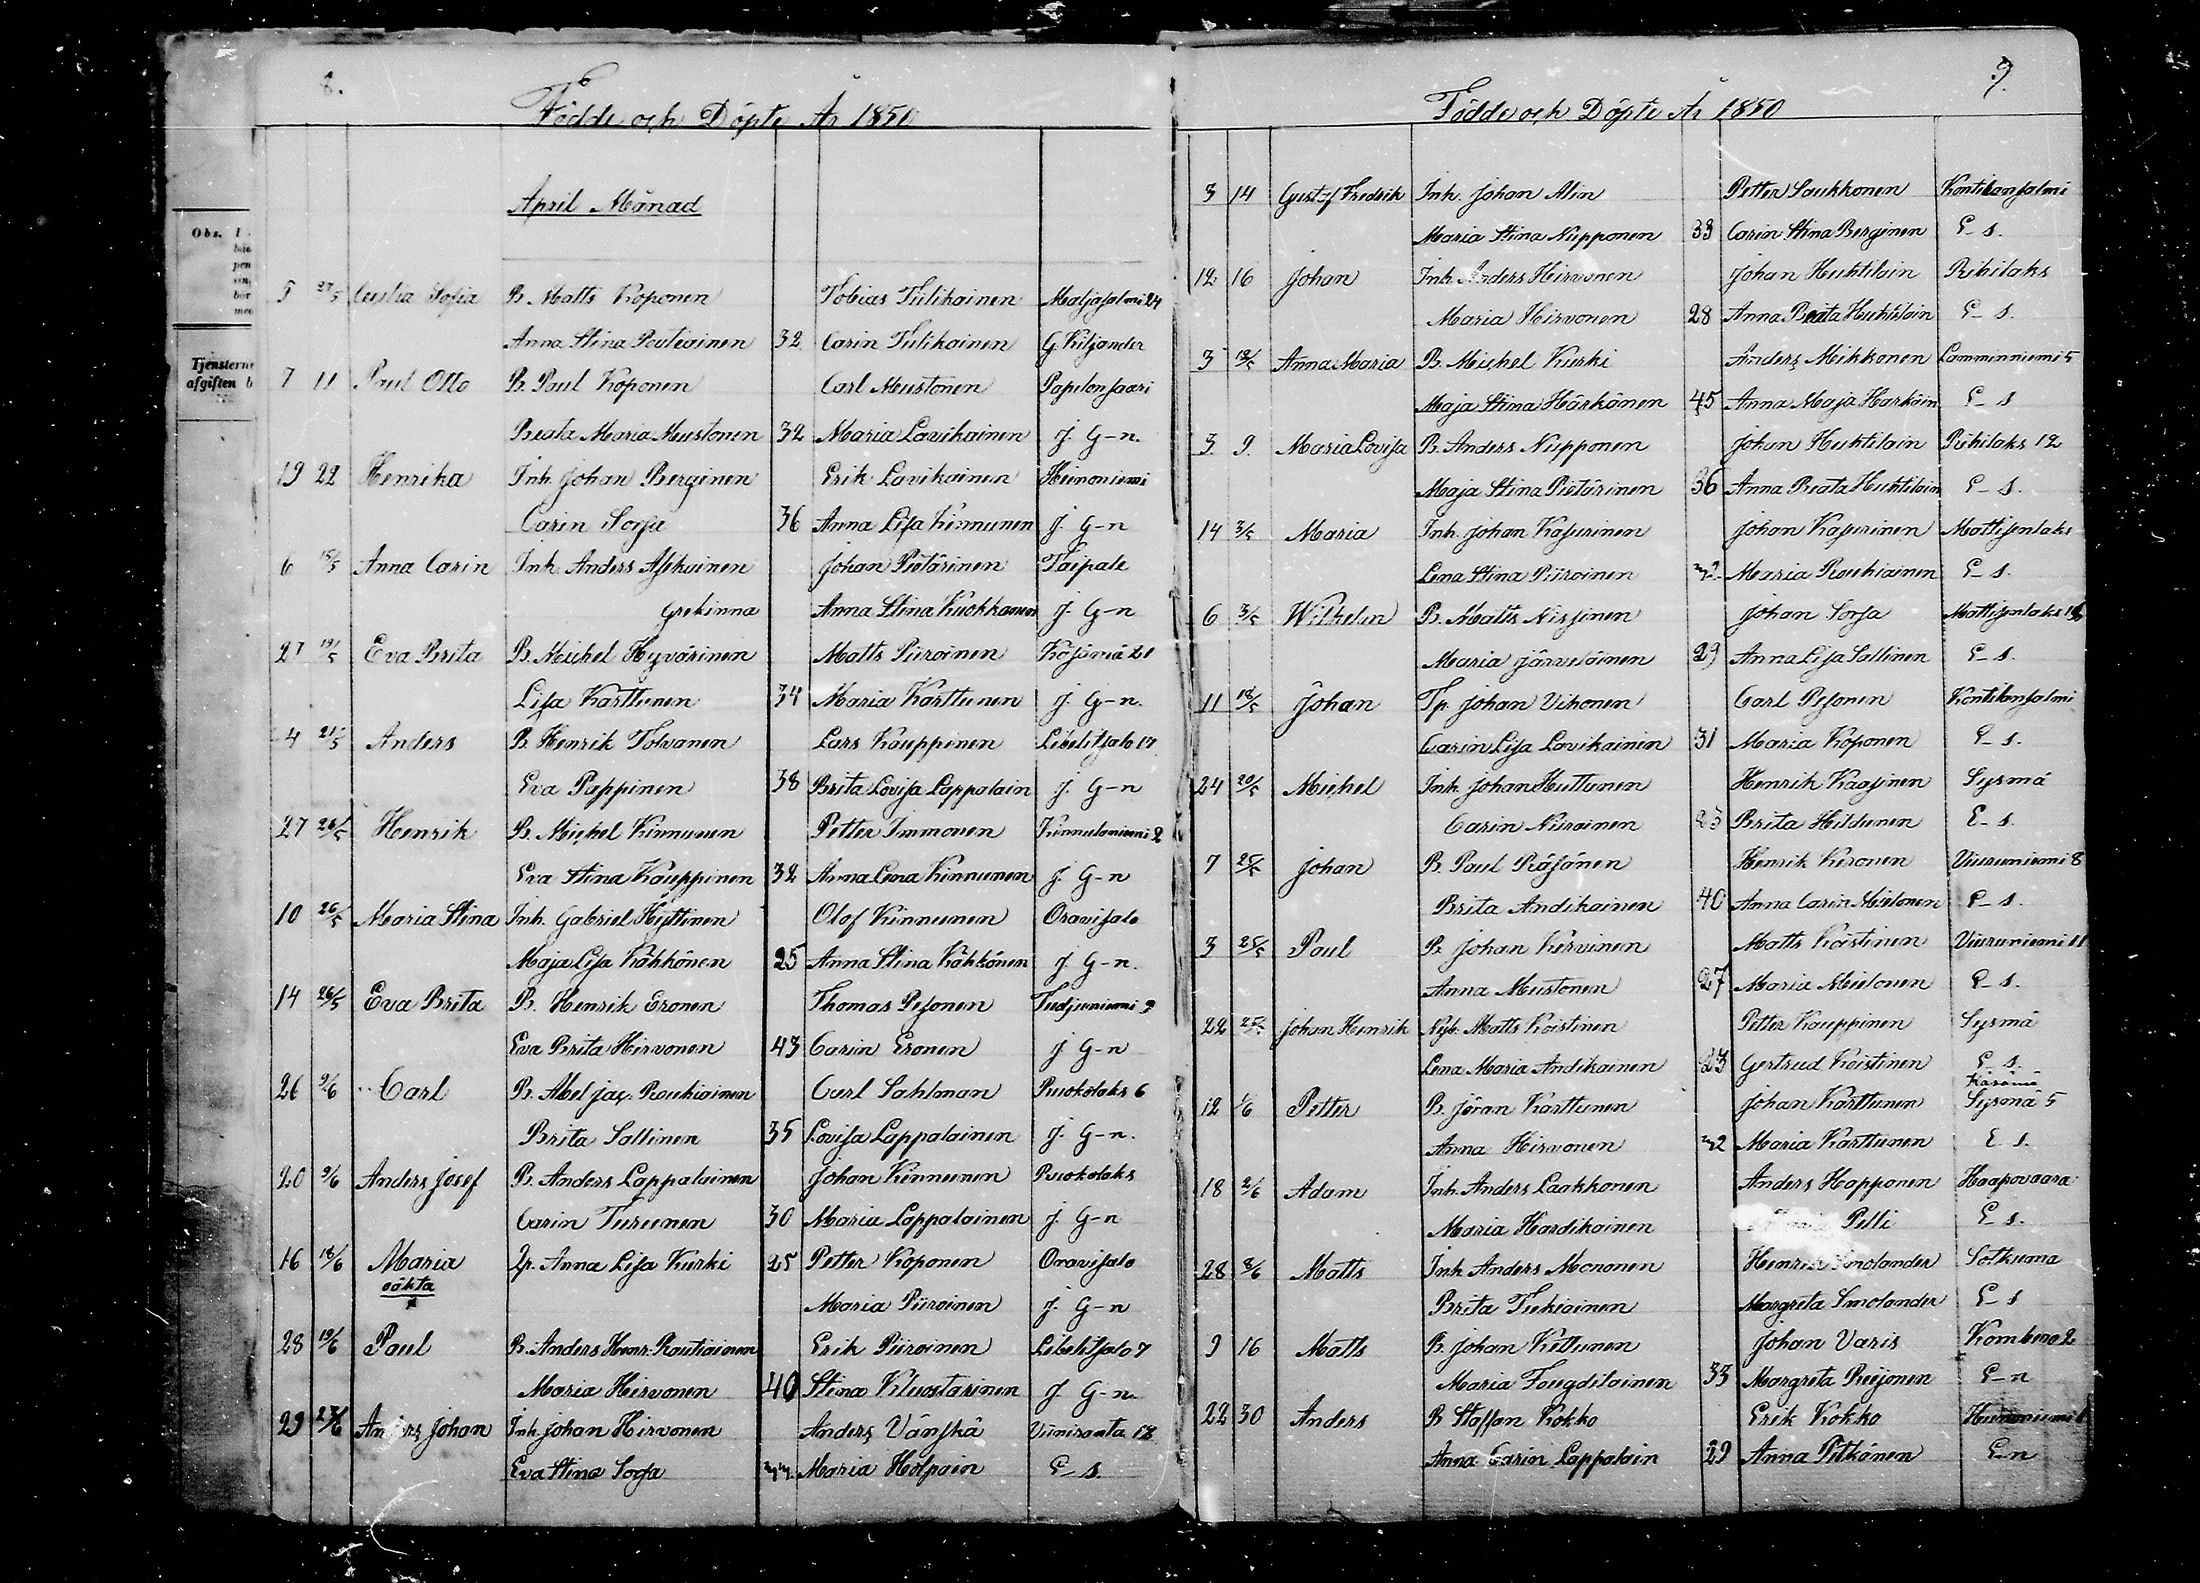 8.
Födde och Döpte År 1850
April Månad
5 27/5 Cecilia Sofia B. Matts Koponen Tobias Tulikainen Maljasalmi 24
Anna Stina Poutiainen 32 Carin Tulikainen G. Kiljander
7 11 Paul Otto B. Paul Koponen Carl Mustonen Papelonsaari
Beata Maria Mustonen 32 Maria Lavikainen J. G-n.
19 22 Henrika Inh. Johan Berginen Erik Lavikainen Heinoniemi
Carin Sorsa 36 Anna Lisa Kinnunen J. G-n
6 15/5 Anna Carin Inh. Anders Asikainen Johan Pietärinen Taipale
Grekinna Anna Stina Kuokkanen J. G-n
27 19/5 Eva Brita B. Michel Hyvärinen Matts Piiroinen Käsämä 21
Lisa Karttunen 34 Maria Karttunen J. G-n.
4 21/5 Anders B. Henrik Tolvanen Lars Kauppinen Libelitsalo 17
Eva Pappinen 38 Brita Lovisa Lappalain J. G-n
27 26/5 Henrik B. Michel Kinnunen Petter Immonen Kinnulaniemi 2
Eva Stina Kauppinen 32 Anna Lena Kinnunen J. G-n
10 26/5 Maria Stina Inh. Gabriel Hyttinen Olof Kinnunen Oravisalo
Maja Lisa Kähkönen 25 Anna Stina Kähkönen J. G-n.
14 26/5 Eva Brita B. Henrik Eronen Thomas Pesonen Tudjuniemi 9
Eva Brita Hirvonen 43 Carin Eronen J G-n
26 9/6 Carl B. Abel Jac. Roukiainen Carl Sahlman Ruokolaks 6
Brita Sallinen 35 Lovisa Lappalainen J. G-n.
20 9/6 Anders Josef B. Anders Lappalainen Johan Kinnunen Ruokolaks
Carin Turunen 30 Maria Lappalainen J. G-n
16 18/6 Maria Lp. Anna Lisa Kurki 25 Petter Koponen Oravisalo
oäkta Maria Piiroinen J. G-n
28 19/6 Paul B. Anders Henr. Rautiainen Erik Piiroinen Libelitsalo 7
Maria Hirvonen 40 Stina Kluostarinen J. G-n.
29 23/6 Anders Johan Inh. Johan Hirvonen Anders Vänskä Viiniranta 18
Eva Stina Sorsa 44. Maria Holpain E-s.
9.
Födde och Döpte År 1850
3 14 Gustaf Fredrik Inh. Johan Alin Petter Saukkonen Kontkansalmi
Maria Stina Nupponen 33 Carin Stina Berginen E-s.
12 16 Johan Inh. Anders Hirvonen Johan Huhtilain Rihilaks
Maria Hirvonen 28 Anna Beata Huhtilain E-s.
3 18/5 Anna Maria B. Michel Kurki Anders Mikkonen Lamminniemi 5
Maja Stina Härkönen 45 Anna Maja Harköin E-s
3 9 Maria Lovisa B. Anders Nupponen Johan Huhtilain Rihilaks 12
Maja Stina Pietärinen 36 Anna Beata Huhtilain E-s.
14 3/5 Maria Inh. Johan Kasurinen Johan Kasurinen Mattisenlaks
Lena Stina Piiroinen 42 Maria Roukiainen E-s.
6 3/5 Wilhelm B. Matts Nissinen Johan Sorsa Mattisenlaks
Maria Järveläinen 29 Anna Lisa Sallinen E-s.
11 18/5 Johan Tp. Johan Vihonen Carl Pesonen Kontkansalmi
Carin Lisa Lavikainen 31 Maria Koponen E-s.
24 20/5 Michel Inh. Johan Huttunen Henrik Kaasinen Sysmä
Carin Niiranen 23 Brita Hildunen E-s.
7 25/5 Johan B. Paul Räsänen Henrik Kironen Viuruniemi 8
Brita Andikainen 40 Anna Carin Mielonen E-s.
3 25/5 Paul B. Johan Kervinen Matts Koistinen Viuruniemi 11
Anna Mustonen 27 Maria Mielonen E-s.
22 25/5 Johan Henrik Nyb. Matts Koistinen Petter Kauppinen Sysmä
Lena Maria Andikainen 23 Gertrud Koistinen E-s.
Käsämä
12 1/6 Petter B. Jöran Karttunen Johan Karttunen Sysmä 5
Anna Hirvonen 42 Maria Karttunen E-s.
18 2/6 Adam Inh. Anders Laakkonen Anders Happonen Haapovaara
Maria Hardikainen Pelli E-s.
28 8/6 Matts Inh. Anders Mononen Henrik Smolander Sotkuma
Brita Tukiainen Margreta Smolander E-s
9 16 Matts B. Johan Kettunen Johan Varis Kombero 2
Maria Fougdilainen 33 Margreta Reijonen E-n
22 30 Anders B Staffan Kokko Erik Kokko Heinoniemi
Anna Carin Lappalain 29 Anna Pitkänen E-n
Obs.
Tjensterne
afgiften b